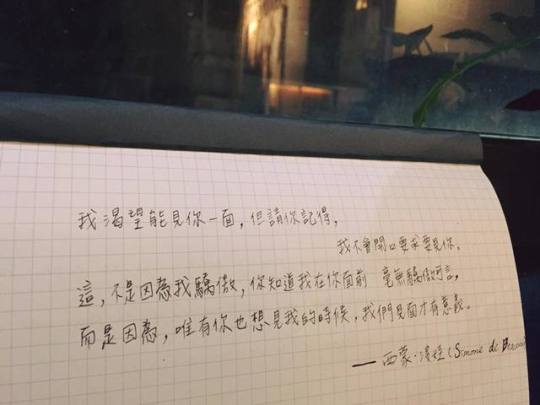 我渴望能見你一面，但請你記得，
我不會開口要求要見你。
這，不是因為我驕傲，你知道我在你面前 毫無驕傲可言，
而是因為，唯有你也想見我的時候，我們見面才有意義。
—西蒙·波娃（Simone de